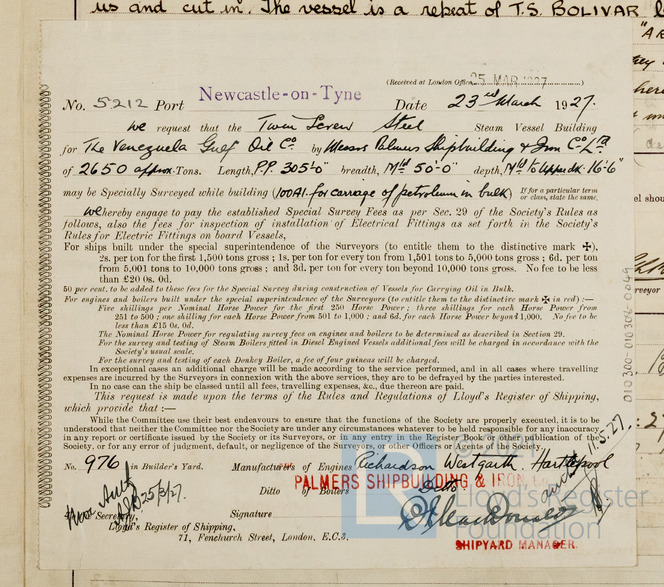 us and cut in. The vessel is a repeat of T.S. BOLIVAR
(Received at London Office 25 MAR 1927)
No. 5212 Port Newcastle-on-Tyne Date 23rd March 1927.
We request that the Twin Screw Steel Steam Vessel Building
for The Venezuela Gulf Oil Co. by Messrs Palmers Shipbuilding & Iron Co Ltd
of 2650 approx. Tons. Length, P.P. 305'-0" breadth, Mld 50'-0" depth, Mld to Upper dk. 16'-6"
may be Specially Surveyed while building (100A1. for carriage of petroleum in bulk) If for a particular term or class, state the same.
We hereby engage to pay the established Special Survey Fees as per Sec. 29 of the Society's Rules as
follows, also the fees for inspection of installation of Electrical Fittings as set forth in the Society's
Rules for Electric Fittings on board Vessels,
For ships built under the special superintendence of the Surveyors (to entitle them to the distinctive mark ✠),
2s. per ton for the first 1,500 tons gross ; 1s. per ton for every ton from 1,501 to 5,000 tons gross ; 6d. per ton
from 5,001 to 10,000 tons gross ; and 3d. per ton for every ton beyond 10,000 tons gross. No fee to be less
than £20 0s. 0d.
50 per cent. to be added to these fees for the Special Survey during construction of Vessels for Carrying Oil in Bulk.
For engines and boilers built under the special superintendence of the Surveyors (to entitle them to the distinctive mark ✠ in red) :—
Five shillings per Nominal Horse Power for the first 250 Horse Power ; three shillings for each Horse Power from
251 to 500 ; one shilling for each Horse Power from 501 to 1,000 ; and 6d. for each Horse Power beyond 1,000. No fee to be
less than £15 0s. 0d.
The Nominal Horse Power for regulating survey fees on engines and boilers to be determined as described in Section 29.
For the survey and testing of Steam Boilers fitted in Diesel Engined Vessels additional fees will be charged in accordance with the
Society's usual scale.
For the survey and testing of each Donkey Boiler, a fee of four guineas will be charged.
In exceptional cases an additional charge will be made according to the service performed, and in all cases where travelling
expenses are incurred by the Surveyors in connexion with the above services, they are to be defrayed by the parties interested.
In no case can the ship be classed until all fees, travelling expenses, &c., due thereon are paid.
This request is made upon the terms of the Rules and Regulations of Lloyd's Register of Shipping,
which provide that :—
While the Committee use their best endeavours to ensure that the functions of the Society are properly executed, it is to be
understood that neither the Committee nor the Society are under any circumstances whatever to be held responsible for any inaccuracy
in any report or certificate issued by the Society or its Surveyors, or in any entry in the Register Book or other publication of the
Society, or for any error of judgment, default, or negligence of the Surveyors, or other Officers or Agents of the Society.
No. 976 in Builder's Yard. Manufacturers of Engines Richardson Westgarth. Hartlepool
Ditto of Boilers Ditto
PALMERS SHIPBUILDING & IRON
25/3/27.
Secretary, Signature MacDonald
Lloyd's Register of Shipping,
71, Fenchurch Street, London, E.C.3.
SHIPYARD MANAGER.
11.5.27.
010300-010306-0049
LR
© 2021
Lloyd's Register
Foundation